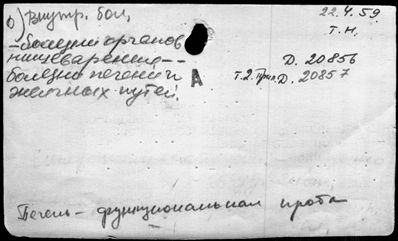 б) Внутр. бол. 22.4.59
т. н.
- болезни органов
пищеварения -- Д. 20856
болезни печени и т. 2. Прил. Д. 20857
желчных путей. А
Печень - функциональная проба